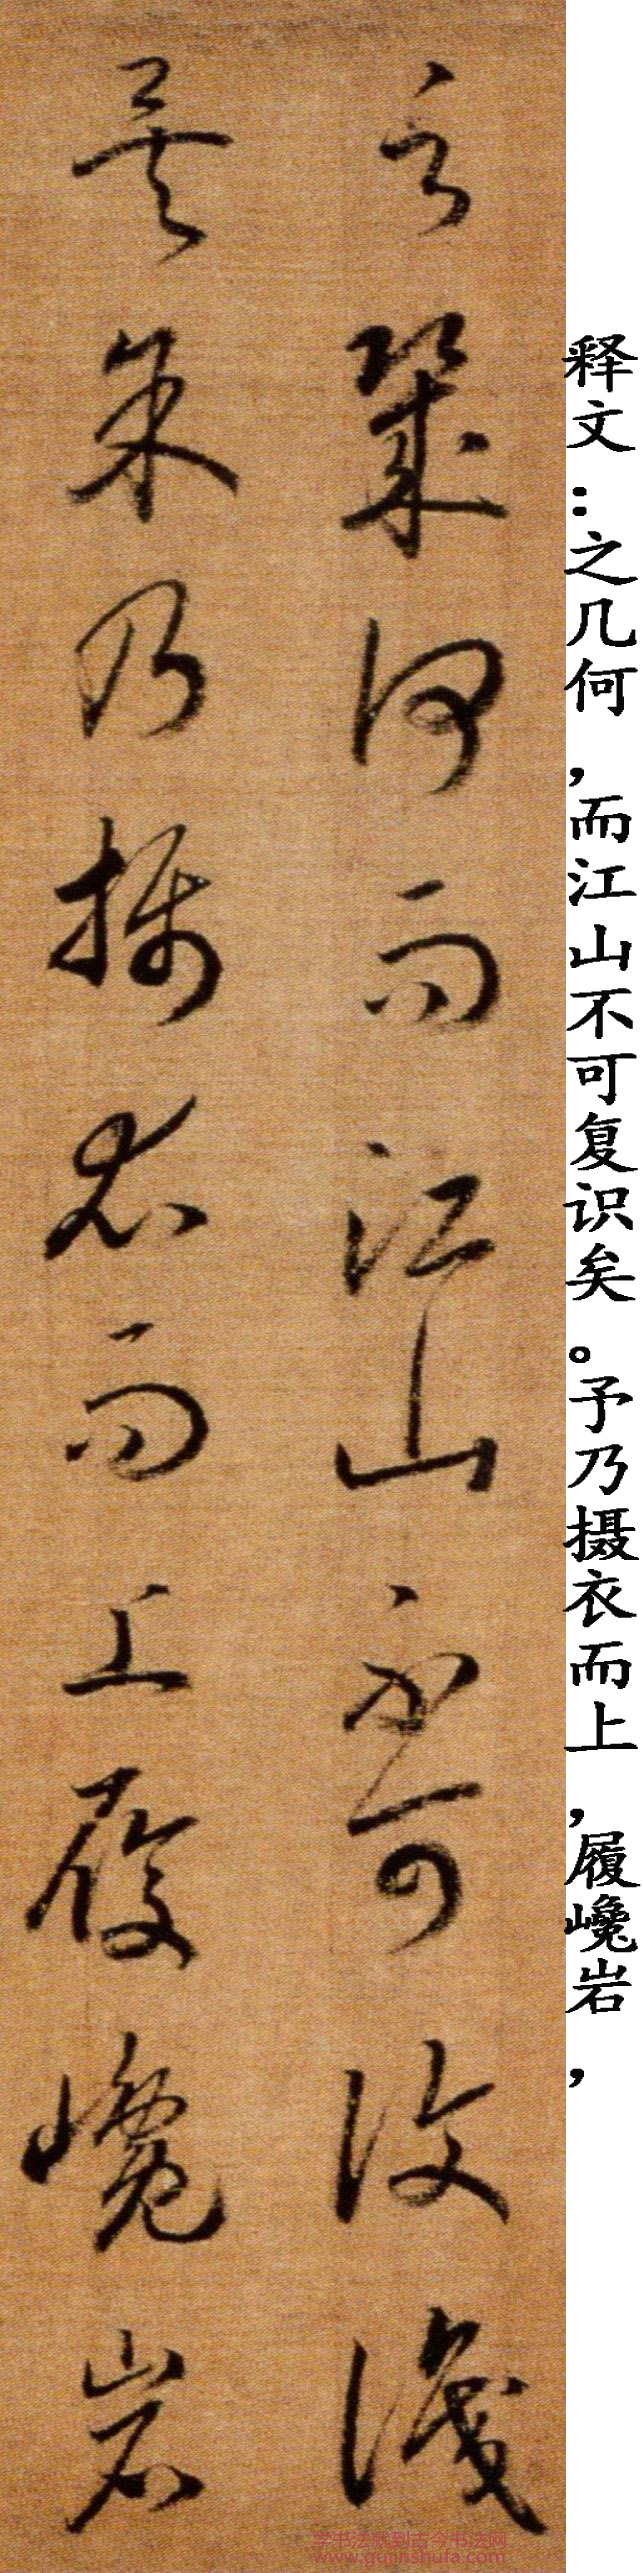 释文:之几何,而江山不可复识矣。予乃摄衣而上,履巉岩,
之幾何而江山不可復識
矣余乃攝衣而上履巉岩
学书法就到古今书法网
www.gujinshufa.com